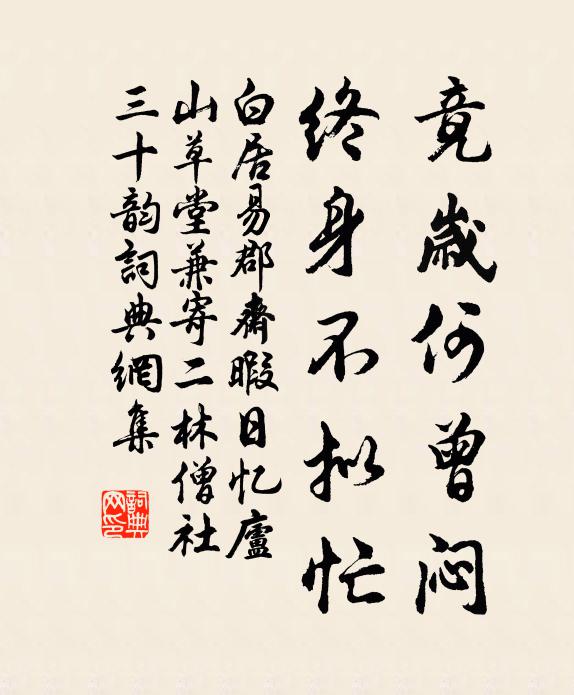 竟歲何曾闷
终身不拟忙
白居易郡齋暇日忆廬
山草堂兼寄二林僧社
三十韵詞典網集
詞典
网印